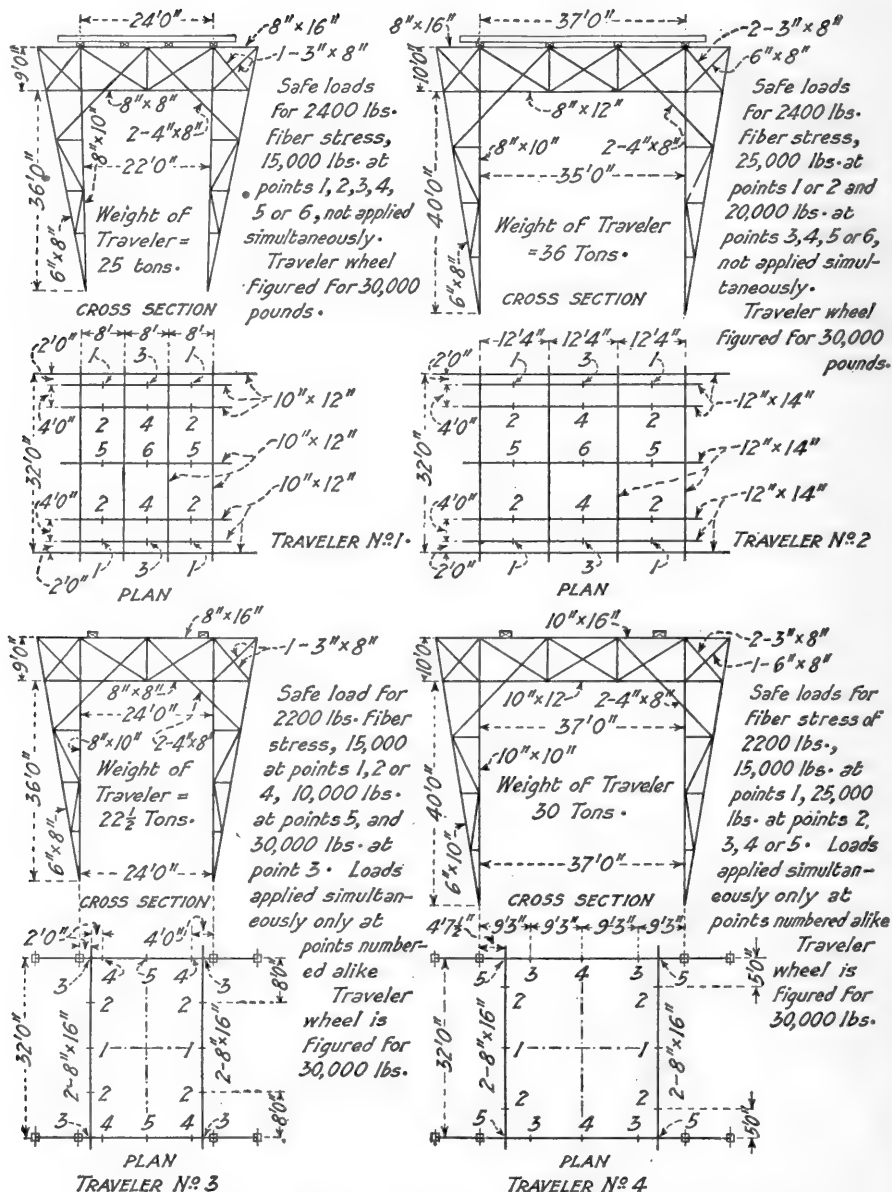 24'0"
8"×16"
1-3"×8"
9'0"
8"×8"
8"×10"
2-4"×8"
22'0"
36'0"
6"×8"
Weight of
Traveler =
25 tons.
Safe loads
for 2400 lbs.
fiber stress,
15,000 lbs. at
points 1,2,3,4,
5 or 6, not applied
simultaneously.
Traveler wheel
figured for 30,000
pounds.
CROSS SECTION
8' 8' 8'
2'0"
1 3 1
10"×12"
4'0"
2 4 2
5 6 5
10"×12"
32'0"
10"×12"
4'0"
2 4 2
2'0"
1 3 1
TRAVELER Nº 1.
PLAN
8"×16"
37'0"
2-3"×8"
6"×8"
10'0"
8"×12"
8"×10"
2-4"×8"
35'0"
40'0"
6"×8"
Weight of Traveler
=36 Tons.
Safe loads
for 2400 lbs.
fiber stress,
25,000 lbs. at
points 1 or 2 and
20,000 lbs. at
points 3,4,5 or 6,
not applied simul-
taneously.
Traveler wheel
figured for 30,000
pounds.
CROSS SECTION
12'4" 12'4" 12'4"
2'0"
1 3 1
12"×14"
4'0"
2 4 2
5 6 5
12"×14"
32'0"
12"×14"
4'0"
2 4 2
2'0"
1 3 1
TRAVELER Nº 2
PLAN
8"×16"
1-3"×8"
9'0"
8"×8"
24'0"
8"×10"
2-4"×8"
36'0"
Weight of
Traveler =
22½ Tons.
6"×8"
24'0"
Safe load for
2200 lbs. fiber
stress, 15,000
at points 1,2 or
4, 10,000 lbs.
at points 5, and
30,000 lbs. at
point 3. Loads
applied simultan-
eously only at
points number-
ed alike
Traveler
wheel is
figured for
30,000 lbs.
CROSS SECTION
2'0" 4'0"
3 4 5 4 3
8'0"
2 2
32'0"
2-8"×16"
1 1
2-8"×16"
2 2
8'0"
3 4 5 4 3
PLAN
TRAVELER Nº 3
10"×16"
2-3"×8"
1-6"×8"
10'0"
10"×12
2-4"×8"
37'0"
10"×10"
40'0"
Weight of Traveler
30 Tons.
6"×10"
37'0"
Safe loads for
fiber stress of
2200 lbs.,
15,000 lbs. at
points 1, 25,000
lbs. at points 2,
3, 4 or 5. Loads
applied simultan-
eously only at
points numbered alike
Traveler
wheel is
figured for
30,000 lbs.
CROSS SECTION
4'7½" 9'3" 9'3" 9'3" 9'3"
5 3 4 3 5
5'0"
2 2
32'0"
2-8"×16"
1 1
2-8"×16"
2 2
5'0"
5 3 4 3 5
PLAN
TRAVELER Nº 4